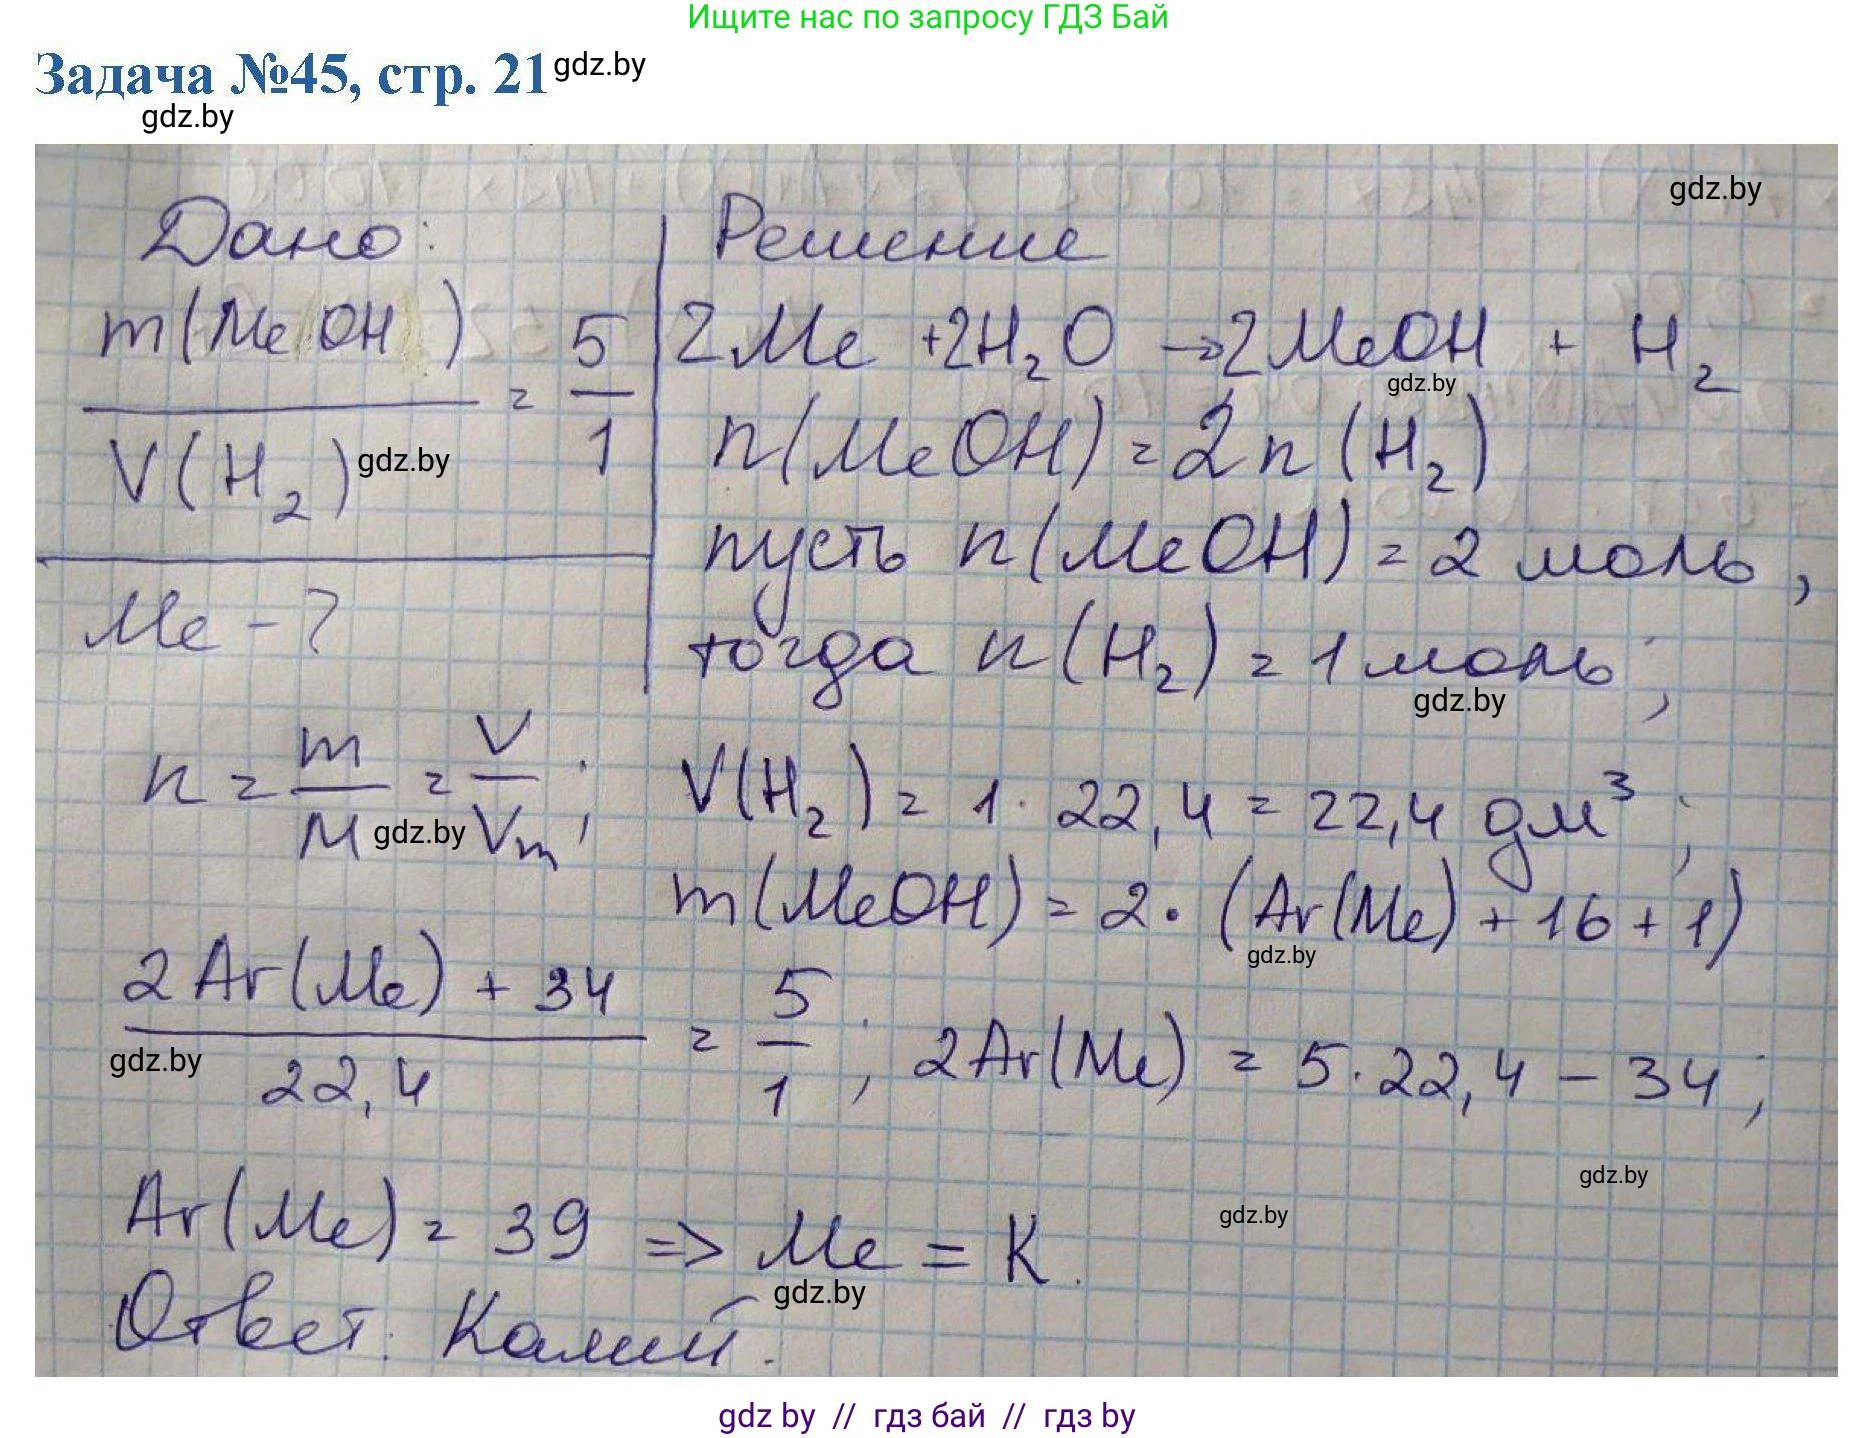 Ищите нас по запросу ГДЗ Бай
Задача №45, стр. 21 gdz.by
gdz.by
gdz.by
Дано:
m(MeOH) / V(H₂) = 5/1
gdz.by
Me - ?
Решение
2Me + 2H₂O → 2MeOH + H₂
gdz.by
n(MeOH) = 2n(H₂)
пусть n(MeOH) = 2 моль,
тогда n(H₂) = 1 моль;
gdz.by
n = m/M = V/Vm;
gdz.by
V(H₂) = 1 · 22,4 = 22,4 дм³;
m(MeOH) = 2 · (Ar(Me) + 16 + 1)
gdz.by
(2Ar(Me) + 34) / 22,4 = 5/1; 2Ar(Me) = 5 · 22,4 - 34;
gdz.by
gdz.by
gdz.by
Ar(Me) = 39 => Me = K.
gdz.by
Ответ: Калий.
gdz by // гдз бай // гдз by